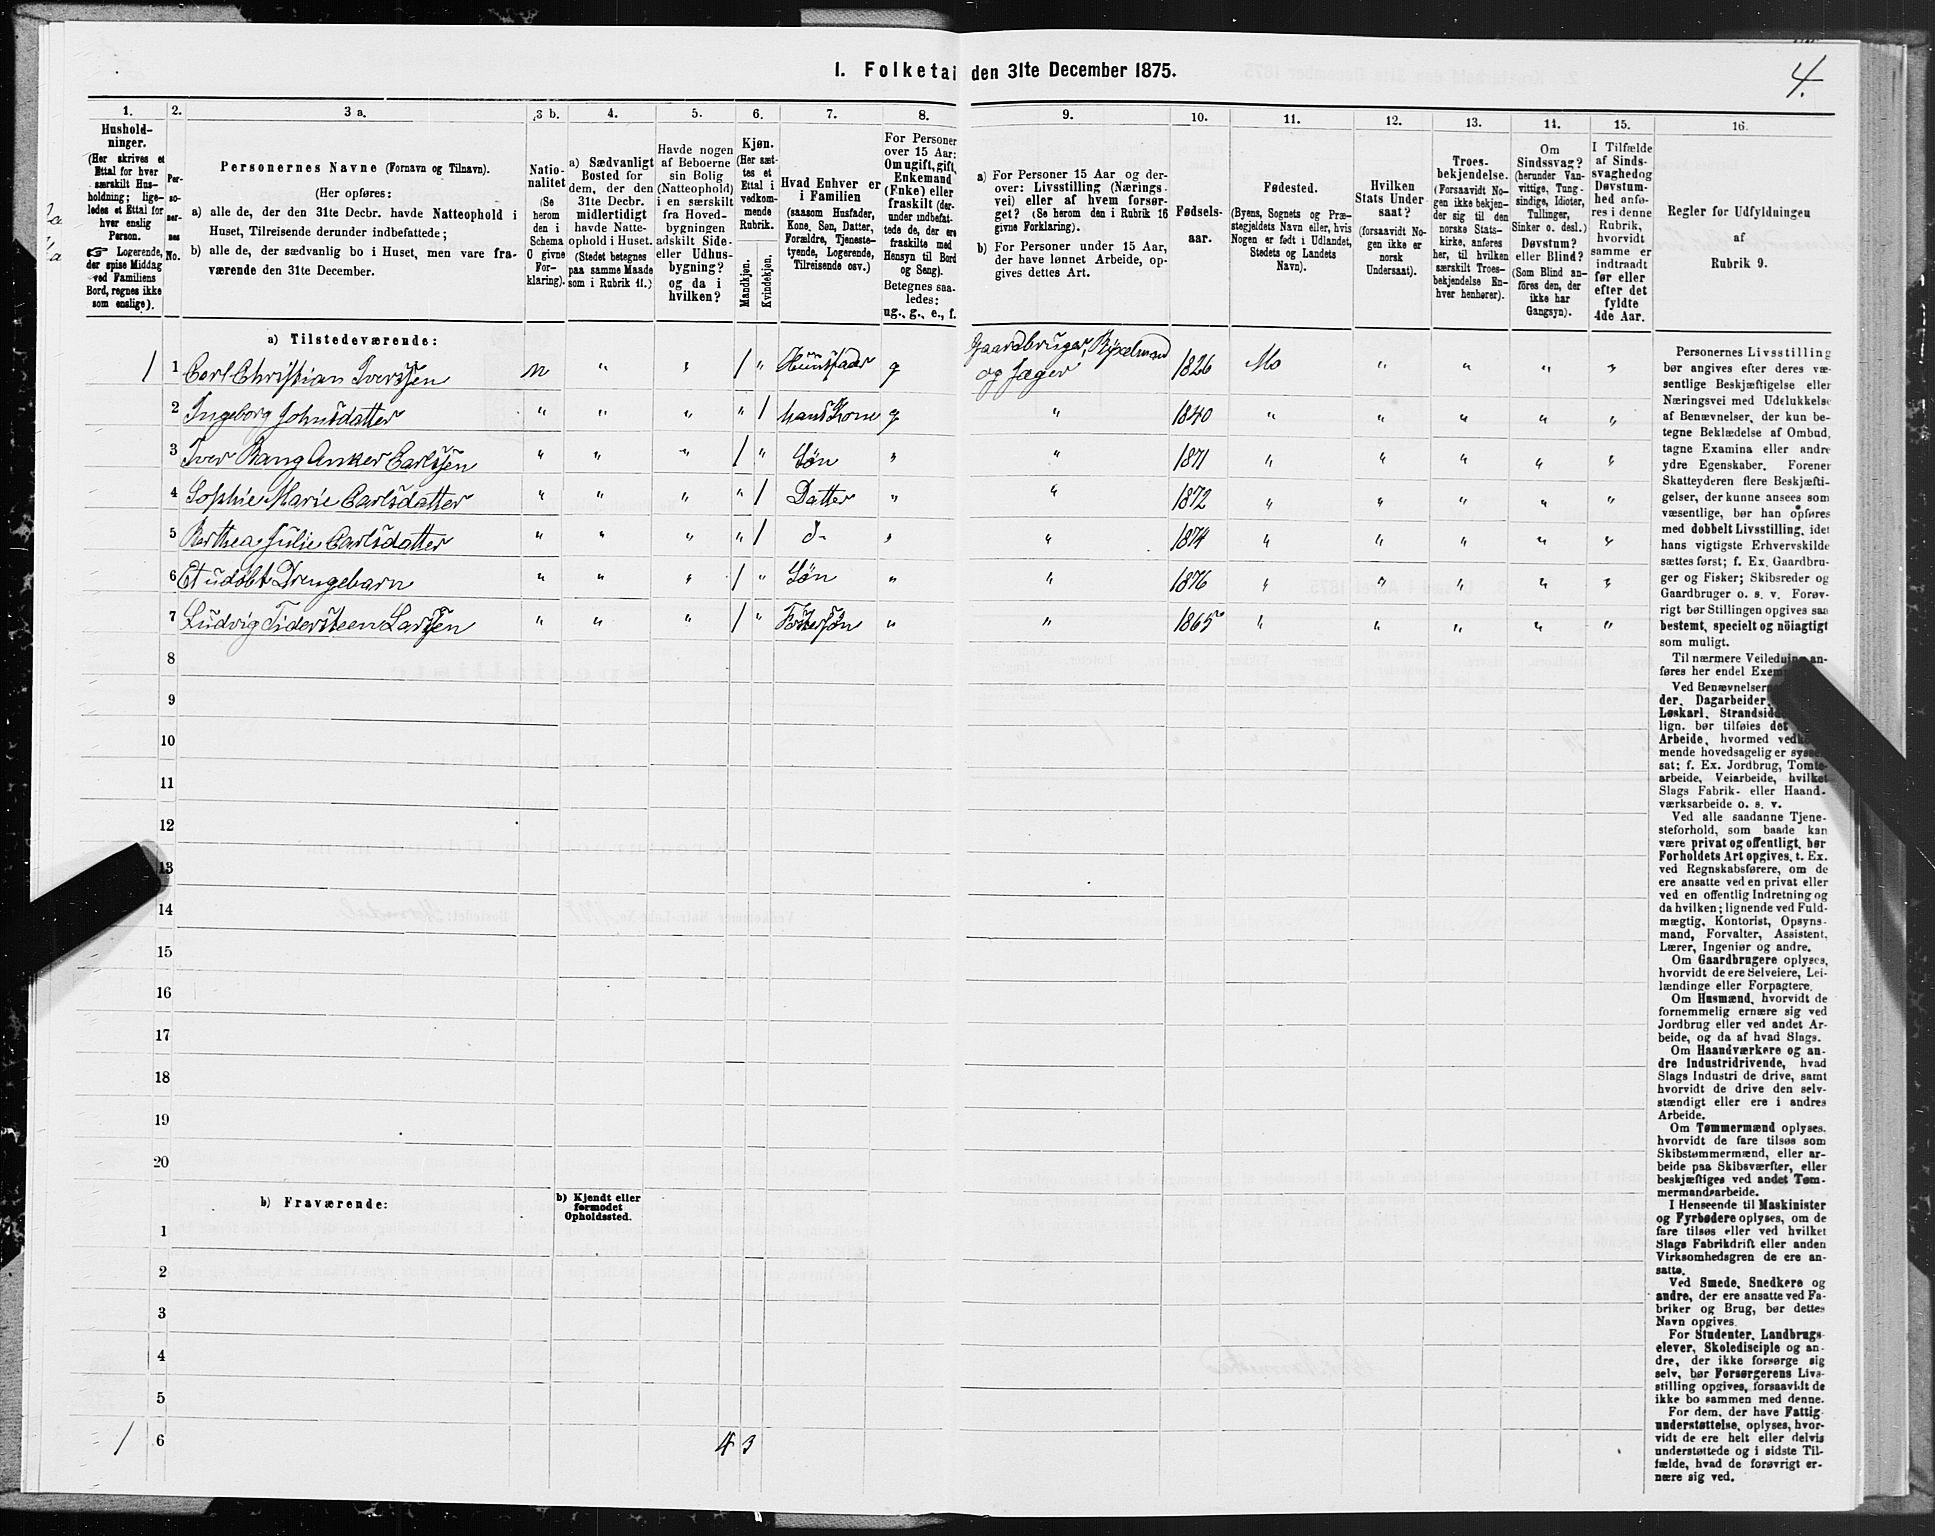 1. Folketal den 31te December 1875.
4.
1.
2.
3 a.
3 b.
4.
5.
6.
7.
8.
9.
10.
11.
12.
13.
14.
15.
16.
Hushold-
ninger.
(Her skrives et
Ettal for hver
særskilt Hus-
holdning; lige-
ledes et Ettal for
hver enslig
Person.
☞ Logerende,
der spise Middag
ved Familiens
Bord, regnes ikke
som enslige).
Per-
so-
ner-
nes
No.
Personernes Navne (Fornavn og Tilnavn).
(Her opføres:
a) alle de, der den 31te Decbr. havde Natteophold i
Huset, Tilreisende derunder indbefattede;
b) alle de, der sædvanlig bo i Huset, men vare fra-
værende den 31te December.
Natio-
nalitet
(Se
herom
den i
Schema
O givne
For-
klaring).
a) Sædvanligt
Bosted for
dem, der den
31te Decbr.
midlertidigt
havde Natte-
ophold i Huset.
(Stedet betegnes
paa samme Maade
som i Rubrik 11.)
Havde nogen
af Beboerne
sin Bolig
(Natteophold)
i en særskilt
fra Hoved-
bygningen
adskilt Side-
eller Udhus-
bygning?
og da i
hvilken?
Kjøn.
(Her sæt-
tes et
Ettal i
vedkom-
mende
Rubrik.
Mandkjøn.
Kvindekjøn.
Hvad Enhver er
i Familien
(saasom Husfader,
Kone, Søn, Datter,
Forældre, Tjeneste-
tyende, Logerende,
Tilreisende osv.)
For Personer
over 15 Aar:
Om ugift, gift,
Enkemand
(Enke) eller
fraskilt (der-
under indbefat-
tede de, der ere
fraskilte med
Hensyn til Bord
og Seng).
Betegnes saa-
ledes:
ug., g., e., f.
a) For Personer 15 Aar og der-
over: Livsstilling (Nærings-
vei) eller af hvem forsør-
get? (Se herom den i Rubrik 16
givne Forklaring).
b) For Personer under 15 Aar,
der have lønnet Arbeide, op-
gives dettes Art.
Fødsels-
aar.
Fødested.
(Byens, Sognets og Præ-
stegjeldets Navn eller, hvis
Nogen er født i Udlandet,
Stedets og Landets
Navn).
Hvilken
Stats Under
saat?
(forsaavidt No-
gen ikke er
norsk
Undersaat).
Troes-
bekjendelse.
(Forsaavidt No-
gen ikke bekjen-
der sig til den
norske Stats-
kirke, anføres
her, til hvilken
særskilt Troes-
bekjendelse En-
hver henhører).
Om
Sindssvag?
(herunder Van-
vittige, Tung-
sindige, Idioter,
Tullinger,
Sinker o. desl.)
Døvstum?
eller Blind?
(Som Blind an-
føres den, der
ikke har
Gangsyn).
I Tilfælde
af Sinds-
svaghed og
Døvstum-
hed anfø-
res i denne
Rubrik,
hvorvidt
samme er
indtraadt
før eller
efter det
fyldte
4de Aar.
Regler for Udfyldningen
af
Rubrik 9.
a) Tilstedeværende:
1 1 Carl Christian Iverssen n " " 1 " Huusfader g Gaardbruger, og Jæger 1826 Mo " " " "
2 Ingeborg Johnsdatter " " " " 1 hans Kone g " 1840 " " " " "
3 Iver Bang Anker Carlssen " " " 1 " Søn " " 1871 " " " " "
4 Sophie Marie Carlsdatter " " " " 1 Datter " " 1872 " " " " "
5 Berthea Julie Carlsdatter " " " " 1 d- " " 1874 " " " " "
6 Et udøbt Drengebarn " " " 1 " Søn " " 1876 " " " " "
7 Ludvig Tidersteen Larssen " " " 1 " " " 1865 " " " " "
8
9
10
11
12
13
14
15
16
17
18
19
20
b) Fraværende:
b) Kjendt eller
formodet
Opholdssted.
1
2
3
4
5
1 6 4 3
Personernes Livsstilling
bør angives efter deres væ-
sentlige Beskjæftigelse eller
Næringsvei med Udelukkelse
af Benævnelser, der kun be-
tegne Beklædelse af Ombud,
tagne Examina eller andre
ydre Egenskaber. Forener
Skatteyderen flere Beskjæfti-
gelser, der kunne ansees som
væsentlige, bør han opføres
med dobbelt Livsstilling, idet
hans vigtigste Erhvervskilde
sættes først; f. Ex. Gaardbru-
ger og Fisker; Skibsreder og
Gaardbruger o. s. v. Forøv-
rigt bør Stillingen opgives saa
bestemt, specielt og nöiagtigt
som muligt.
Til nærmere Veiledning an-
føres her endel
Ved
der, Dagarbeider,
Løskarl,
lign. bør tilføies det
Arbeide, hvormed
mende hovedsagelig er
sat; f. Ex. Jordbrug, Tomte-
arbeide, Veiarbeide, hvilket
Slags Fabrik- eller Haand-
værksarbeide o. s. v.
Ved alle saadanne Tjene-
steforhold, som baade kan
være privat og offentligt, bør
Forholdets Art opgives, t. Ex.
ved Regnskabsførere, om de
ere ansatte ved en privat eller
ved en offentlig Indretning og
da hvilken; lignende ved Fuld-
mægtig, Kontorist, Opsyns-
mand, Forvalter, Assistent,
Lærer, Ingeniør og andre.
Om Gaardbrugere oplyses,
hvorvidt de ere Selveiere, Lei-
lændinge eller Forpagtere.
Om Husmænd, hvorvidt de
fornemmelig ernære sig ved
Jordbrug eller ved andet Ar-
beide, og da af hvad Slags.
Om Haandværkere og an-
dre Industridrivende, hvad
Slags Industri de drive, samt
hvorvidt de drive den selv-
stændigt eller ere i andres
Arbeide.
Om Tømmermænd oplyses,
hvorvidt de fare tilsøs som
Skibstømmermænd, eller ar-
beide paa Skibsværfter, eller
beskjæftiges ved andet Tøm-
mermandsarbeide.
I Henseende til Maskinister
og Fyrbødere oplyses, om de
fare tilsøs eller ved hvilket
Slags Fabrikdrift eller anden
Virksomhedsgren de ere an-
satte.
Ved Smede, Snedkere og
andre, der ere ansatte ved Fa-
briker og Brug, bør dettes
Navn opgives.
For Studenter, Landbrugs-
elever, Skoledisciple og an-
dre, der ikke forsørge sig
selv, bør Forsørgerens Livs-
stilling opgives, forsaavidt de
ikke bo sammen med denne.
For dem, der have Fattig-
understøttelse, oplyses, hvor-
vidt de ere helt eller delvis
understøttede og i sidste Til-
fælde, hvad de forøvrigt er-
nære sig ved.